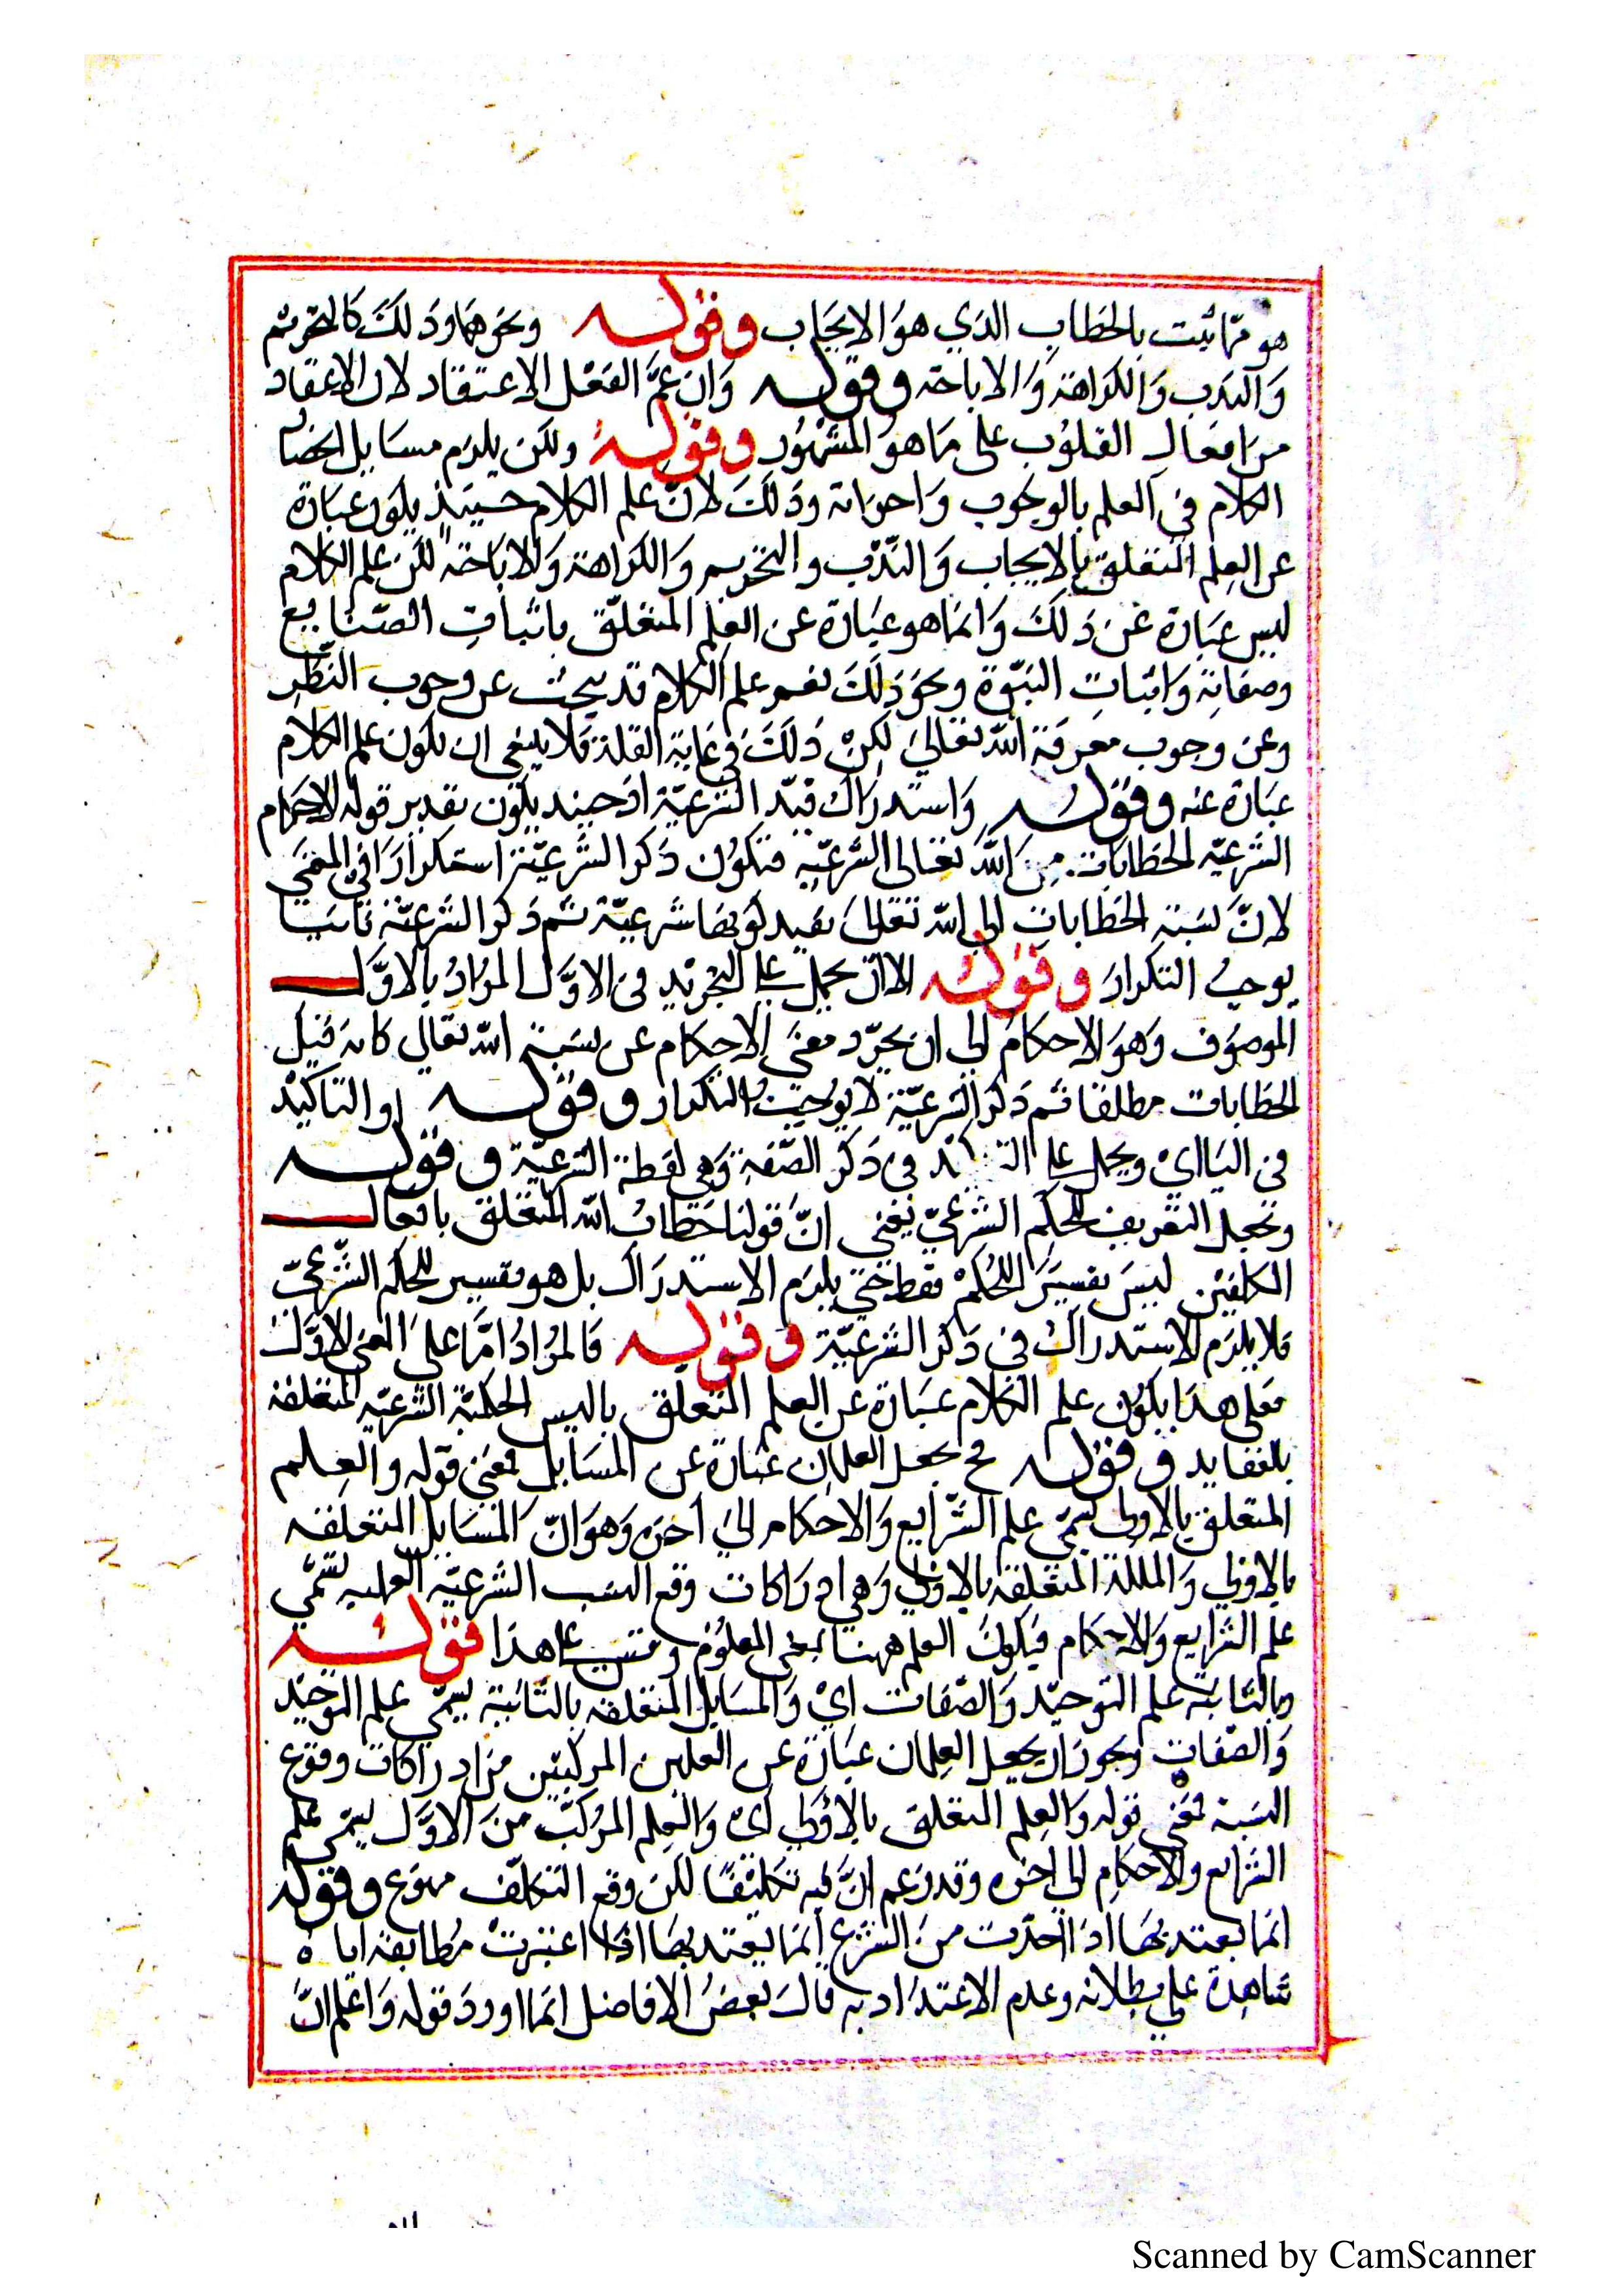 هو ما ثبت بالخطاب الذي هو الايجاب وقوله ونحوهما وذلك كالتحريم
والندب والكراهة والاباحة وقوله وان عمّ الفعل الاعتقاد لان الاعتقاد
من افعال القلوب على ما هو المشهور وقوله ولكن يلزم مسايل
الكلام في العلم بالوجوب واخواته وذلك لانّ علم الكلام حينيذ يكون عبارة
عن العلم المتعلق بالايجاب والنّدب والتحريم والكراهة والاباحة لكن علم الكلام
ليس عبارة عن ذلك وانما هو عبارة عن العلم المتعلّق باثبات الصّنايع
وصفاته واثبات النبّوة ونحو ذلك نعم علم الكلام قد يبحث عن وجوب النّظر
وعن وجوب معرفة الله تعالى لكن ذلك في غاية القلة فلا ينبغي ان يكون علم الكلام
عبارة عنه وقوله واستدراك قيد الشرعيّة اذ حينيذ يكون تقدير قوله الاحكام
الشرعيّه الخطابات من الله تعالى الشرعيّه فتكون ذكر الشرعيّة استكرارا في المعنى
لانّ نسبة الخطابات الى الله تعالى يفيد كونها شرعيّة ثم ذكر الشرعيّة ثانيا
يوجب التكرار وقوله الا ان يحمل على التجريد في الاوّل المراد بالاوّل
الموصوف وهو الاحكام الى ان يجرّد معنى الاحكام عن نسبة الله تعالى كانه قيل
الخطابات مطلقا ثم ذكر الشرعيّة لا يوجب التكرار وقوله او التاكيد
في الثاني اي ويحمل على في ذكر الصّفة وهي لفظة الشرعيّة وقوله
ونجعل التعريف للحكم الشرعيّ يعني انّ قولنا خطاب الله المتعلق بافعال
المكلفين ليس تفسيرا للحكم فقط حتى يلزم الاستدراك بل هو تفسير للحكم الشّرعيّ
فلا يلزم الاستدراك في ذكر الشرعيّة وقوله فالمراد امّا على المعنى الاوّل
فعلى هذا يكون علم الكلام عبارة عن العلم المتعلّق الحكميّة الشرعيّه المتعلقة
بلعقايد وقوله فح يجعل العلمان عبارة عن المسايل فمعنى قوله والعلم
المتعلق بالاولى يسمّى علم الشّرايع والاحكام الى اخره وهو انّ المسايل المتعلقه
بالاولى المتعلقه بالاولى وهي ادراكات وقع النسب الشرعيّه العمليه تسمّى
علم الشرايع والاحكام فيكون العلم ههنا بمعنى المعلوم وقس على هذا قوله
وبالثانية علم التوحيد والصّفات اي والمسايل المتعلقه بالثّانية يسمّى علم التوحيد
والصّفات ويجوز ان يجعل العلمان عبارة عن العلمين المركبين من ادراكات وقوع
النسبة فمعنى قوله والعلم المتعلق بالاولى اي والعلم المركّب من الاوّل يسمّى علم
الشرايع والاحكام الى اخره وقد زعم انّ فيه تكليفا لكن وقع التكلّف وقوله
انما يعتد بها اذا اخذت من الشرع انما يعتد بها اذا اعتبرت مطابقة
شاهدة على بطلانه وعدم الاعتداد به قال بعض الافاضل انما اورد قوله واعلم انّ
Scanned by CamScanner